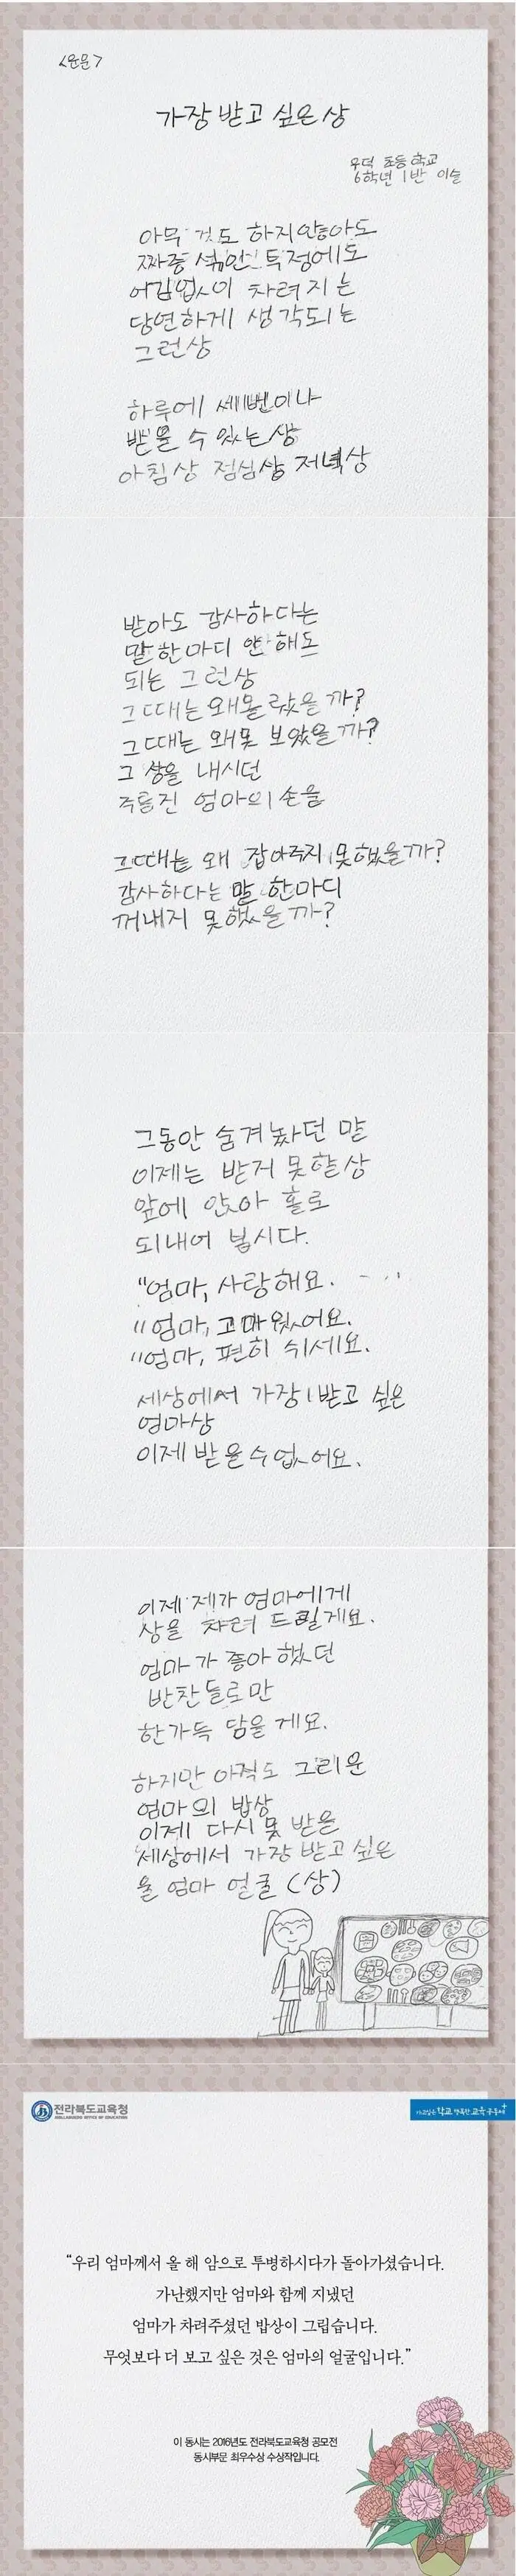 <운문>
가장 받고 싶은 상
우덕 초등학교
6학년 1반 이슬
아무 것도 하지않아도
짜증 섞인 투정에도
어김없이 차려지는
당연하게 생각되는
그런상
하루에 세번이나
받을 수 있는 상
아침상 점심상 저녁상
받아도 감사하다는
말 한마디 안 해도
되는 그런상
그때는 왜몰랐을까?
그때는 왜못 보았을까?
그 상을 내시던
주름진 엄마의 손을
그때는 왜 잡아주지 못했을까?
감사하다는 말 한마디
꺼내지 못했을까?
그동안 숨겨놨던 말
이제는 받지 못할상
앞에 앉아 홀로
되내어 봅시다.
"엄마, 사랑해요.
"엄마, 고마웠어요.
"엄마, 편히 쉬세요.
세상에서 가장 받고 싶은
엄마상
이제 받을수 없어요.
이제 제가 엄마에게
상을 차려 드릴게요.
엄마가 좋아했던
반찬들로만
한가득 담을게요.
하지만 아직도 그리운
엄마의 밥상
이제 다시 못 받을
세상에서 가장 받고 싶은
울 엄마 얼굴 (상)
전라북도교육청
JEOLLABUKDO OFFICE OF EDUCATION
가고싶은 학교 행복한 교육공동체
"우리 엄마께서 올 해 암으로 투병하시다가 돌아가셨습니다.
가난했지만 엄마와 함께 지냈던
엄마가 차려주셨던 밥상이 그립습니다.
무엇보다 더 보고 싶은 것은 엄마의 얼굴입니다."
이 동시는 2016년도 전라북도교육청 공모전
동시부문 최우수상 수상작입니다.